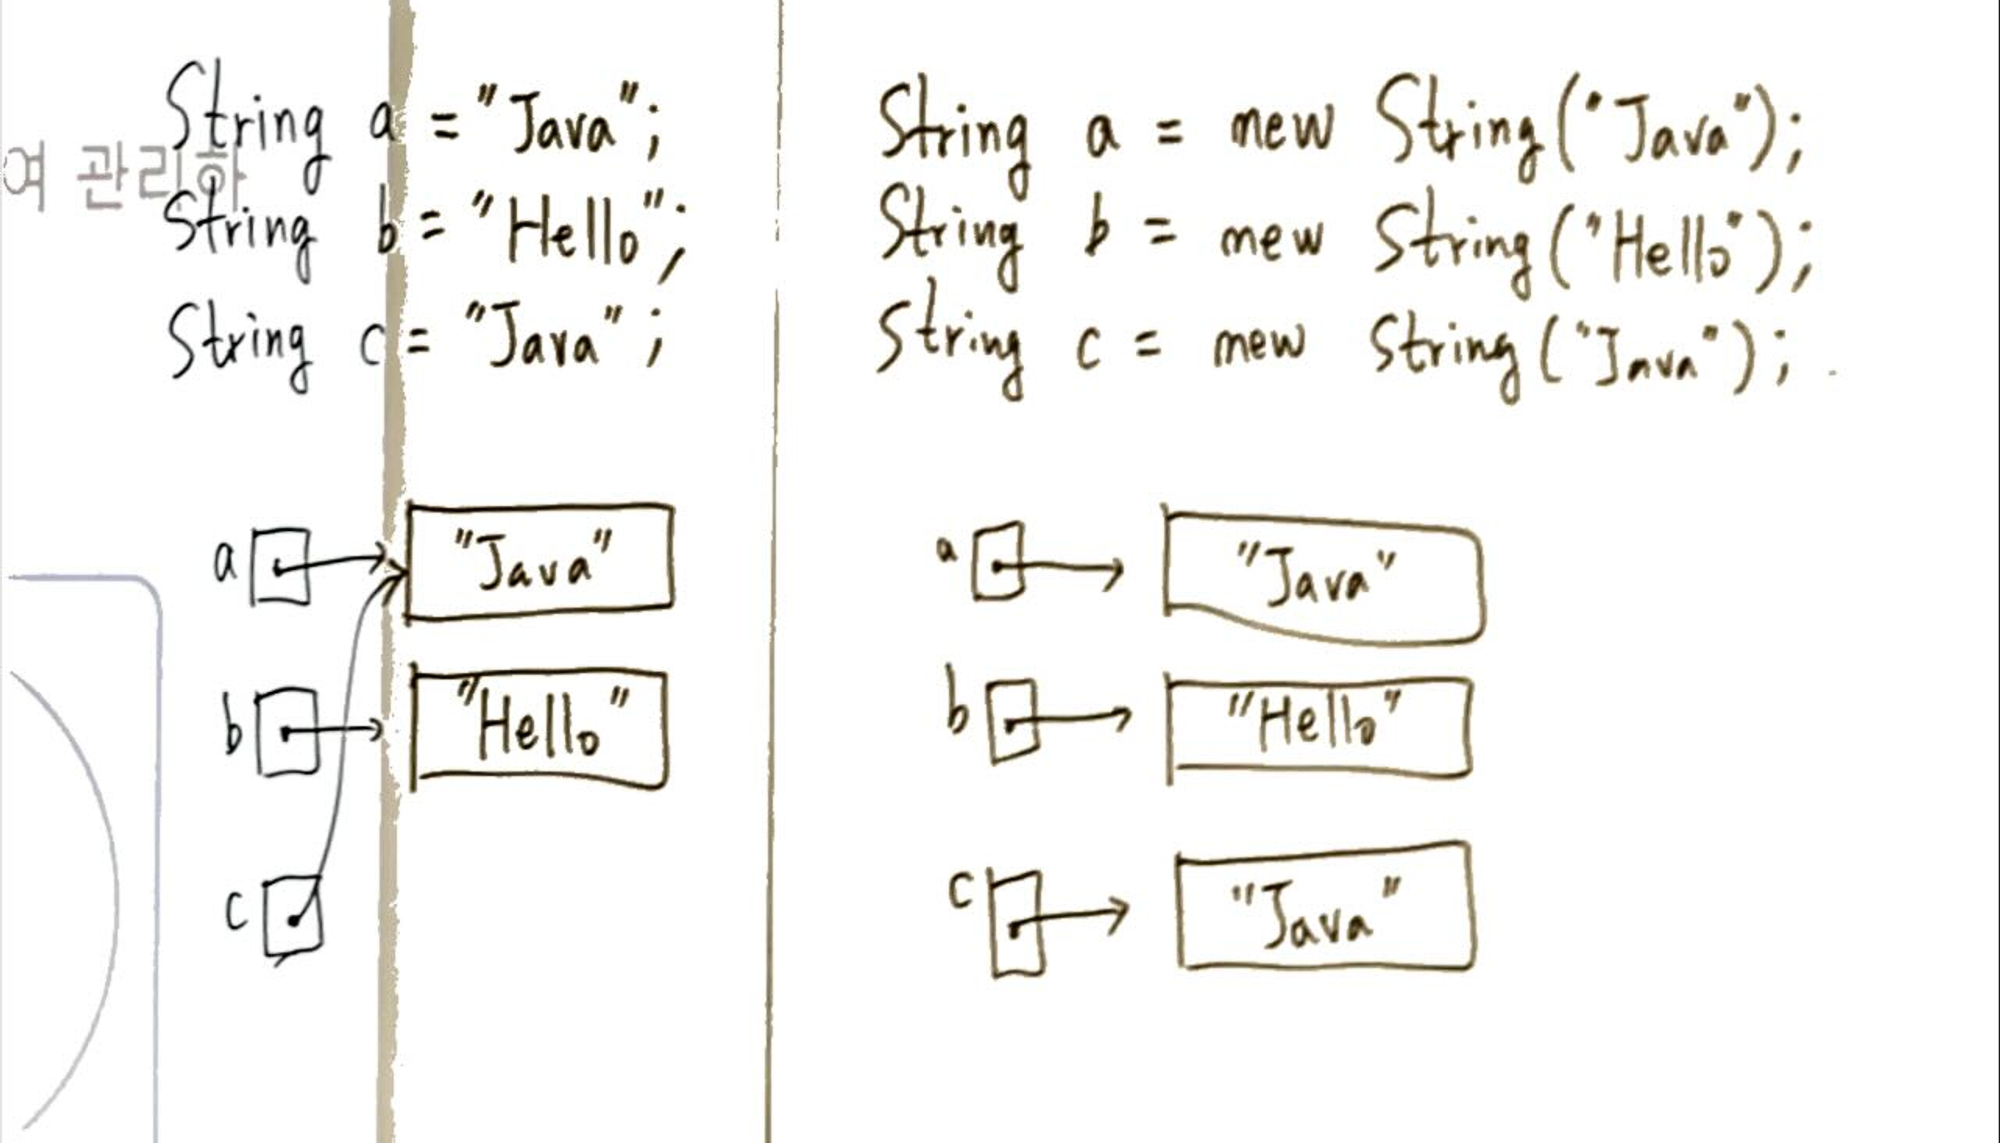 String a = "Java";
여 관리하
String b = "Hello";
String c = "Java";
a "Java"
b "Hello"
c
String a = new String("Java");
String b = new String("Hello");
String c = new String("Java");
a "Java"
b "Hello"
c "Java"